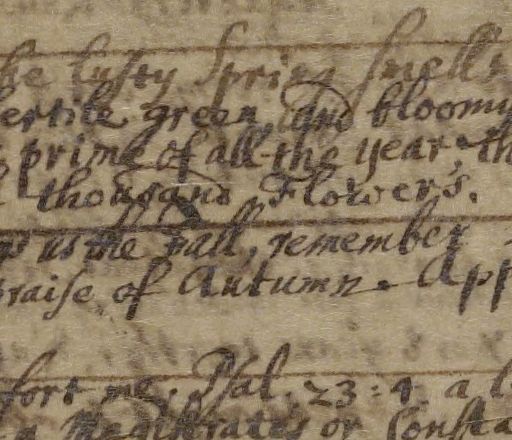 he lusty Spring smells
fertile green, and bloomy
prime of all the year, th
thousand Flowers.
us the past, remember
praise of Autumn. App
fort me. Psal. 23:4. a
Magistrates or Consta